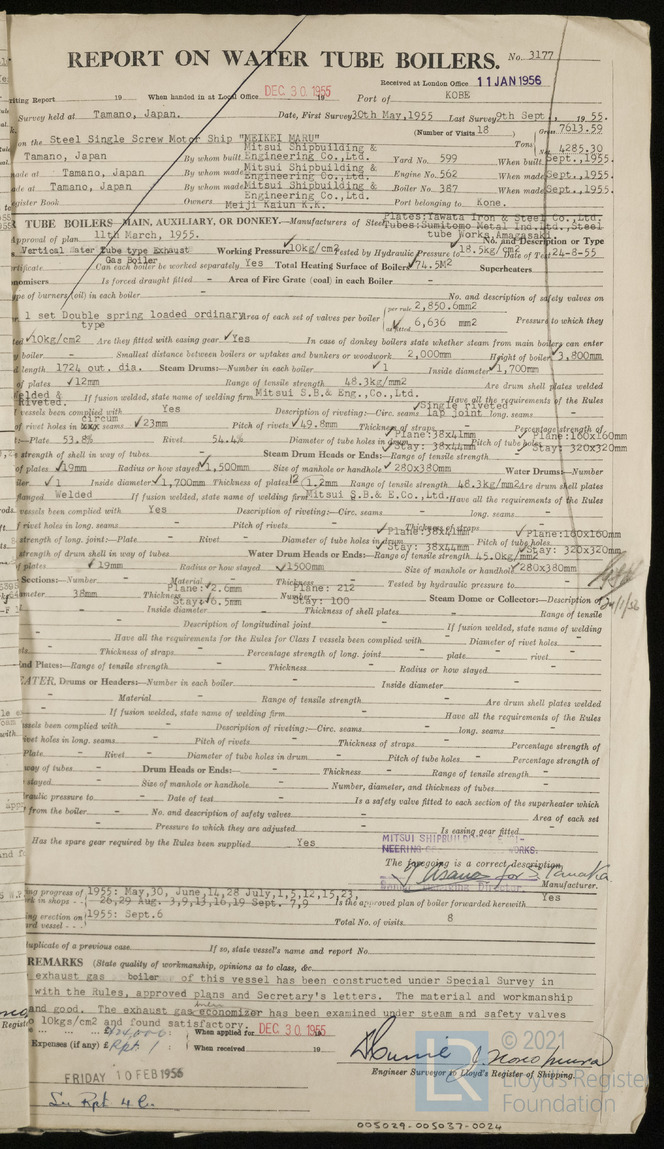 REPORT ON WATER TUBE BOILERS. No. 3177
Received at London Office 11 JAN 1956
riting Report 19 When handed in at Local Office DEC 30 1955 19 Port of KOBE
Survey held at Tamano, Japan. Date, First Survey 30th May, 1955 Last Survey 9th Sept. 1955.
(Number of Visits 18 ) Gross 7613.59
on the Steel Single Screw Motor Ship "MEIKEI MARU" Tons
Net 4285.30
Tamano, Japan By whom built Mitsui Shipbuilding & Engineering Co., Ltd. Yard No. 599 When built Sept., 1955.
ade at Tamano, Japan By whom made Mitsui Shipbuilding & Engineering Co., Ltd. Engine No. 562 When made Sept., 1955.
ade at Tamano, Japan By whom made Mitsui Shipbuilding & Engineering Co., Ltd. Boiler No. 387 When made Sept., 1955.
gister Book Owners Meiji Kaiun K.K. Port belonging to Kone.
R TUBE BOILERS—MAIN, AUXILIARY, OR DONKEY.—Manufacturers of Steel Plates: Yawata Iron & Steel Co., Ltd.
Tubes: Sumitomo Metal Ind. Ltd., Steel tube Works, Amagasaki
pproval of plan 11th March, 1955. No. and Description or Type
Vertical Water Tube type Exhaust Gas Boiler Working Pressure 10kg/cm2 Tested by Hydraulic Pressure to 18.5kg/cm2 Date of Test 24-8-55
ertificate Can each boiler be worked separately Yes Total Heating Surface of Boilers 74.5M2 Superheaters
nomisers Is forced draught fitted - Area of Fire Grate (coal) in each Boiler -
ype of burners (oil) in each boiler - No. and description of safety valves on
1 set Double spring loaded ordinary type Area of each set of valves per boiler per rule 2,850.6mm2 as fitted 6,636 mm2 Pressure to which they
ed 10kg/cm2 Are they fitted with easing gear Yes In case of donkey boilers state whether steam from main boilers can enter
y boiler - Smallest distance between boilers or uptakes and bunkers or woodwork 2,000mm Height of boiler 3,800mm
d length 1724 out. dia. Steam Drums:—Number in each boiler 1 Inside diameter 1,700mm
of plates 12mm Range of tensile strength 48.3kg/mm2 Are drum shell plates welded
Welded & Riveted. If fusion welded, state name of welding firm Mitsui S.B.& Eng., Co., Ltd. Have all the requirements of the Rules
vessels been complied with Yes Description of riveting:—Circ. seams Single riveted lap joint long. seams -
of rivet holes in circum seams 23mm Pitch of rivets 49.8mm Thickness of straps - Percentage strength of
t:—Plate 53.8% Rivet 54.4% Diameter of tube holes in drum Plane: 38x41mm Stay: 38x44mm Pitch of tube holes Plane: 160x160mm Stay: 320x320mm
strength of shell in way of tubes - Steam Drum Heads or Ends:—Range of tensile strength -
of plates 19mm Radius or how stayed 1,500mm Size of manhole or handhole 280x380mm Water Drums:—Number
iler 1 Inside diameter 1,700mm Thickness of plates 12 Range of tensile strength 48.3kg/mm2 Are drum shell plates
langed Welded If fusion welded, state name of welding firm Mitsui S.B.& E.Co., Ltd. Have all the requirements of the Rules
vessels been complied with Yes Description of riveting:—Circ. seams - long. seams -
f rivet holes in long. seams - Pitch of rivets - Thickness of straps -
strength of long. joint:—Plate - Rivet - Diameter of tube holes in drum Plane: 38x41mm Stay: 38x44mm Pitch of tube holes Plane: 160x160mm Stay: 320x320mm
strength of drum shell in way of tubes - Water Drum Heads or Ends:—Range of tensile strength 45.0kg/mm2
f plates 19mm Radius or how stayed 1500mm Size of manhole or handhole 280x380mm
Sections:—Number - Material - Thickness - Tested by hydraulic pressure to -
ameter 38mm Thickness Plane: 2.6mm Stay: 6.5mm Number Plane: 212 Stay: 100 Steam Dome or Collector:—Description of
24/1/56
Inside diameter - Thickness of shell plates - Range of tensile
Description of longitudinal joint - If fusion welded, state name of welding
Have all the requirements for the Rules for Class I vessels been complied with - Diameter of rivet holes -
ets Thickness of straps - Percentage strength of long. joint - plate - rivet -
End Plates:—Range of tensile strength - Thickness - Radius or how stayed -
EATER, Drums or Headers:—Number in each boiler - Inside diameter -
Material - Range of tensile strength - Are drum shell plates welded
If fusion welded, state name of welding firm - Have all the requirements of the Rules
ssels been complied with - Description of riveting:—Circ. seams - long. seams -
ivet holes in long. seams - Pitch of rivets - Thickness of straps - Percentage strength of
Plate - Rivet - Diameter of tube holes in drum - Pitch of tube holes - Percentage strength of
way of tubes - Drum Heads or Ends:— Thickness - Range of tensile strength -
stayed - Size of manhole or handhole - Number, diameter, and thickness of tubes -
raulic pressure to - Date of test - Is a safety valve fitted to each section of the superheater which
from the boiler - No. and description of safety valves - Area of each set
Pressure to which they are adjusted - Is easing gear fitted -
Has the spare gear required by the Rules been supplied Yes
MITSUI SHIPBUILDING & ENGI-
NEERING WORKS.
The foregoing is a correct description,
for S. Tanaka
Director, Manufacturer.
ng progress of 1955: May, 30, June, 14, 28 July, 1, 5, 12, 15, 23,
rk in shops - - 26, 29 Aug. 3, 9, 13, 16, 19 Sept. 7, 9 Is the approved plan of boiler forwarded herewith Yes
ng erection on 1955: Sept. 6
rd vessel - - - Total No. of visits 8
uplicate of a previous case If so, state vessel's name and report No.
REMARKS (State quality of workmanship, opinions as to class, &c.
exhaust gas boiler of this vessel has been constructed under Special Survey in
with the Rules, approved plans and Secretary's letters. The material and workmanship
and good. The exhaust gas economizer has been examined under steam and safety valves
10kgs/cm2 and found satisfactory.
When applied for DEC 30 1955 19
Expenses (if any) £ Rpt. 1 When received 19
Engineer Surveyor to Lloyd's Register of Shipping.
FRIDAY 10 FEB 1956
See Rpt 4c.
LR © 2021 Lloyd's Register Foundation
005029-005037-0024